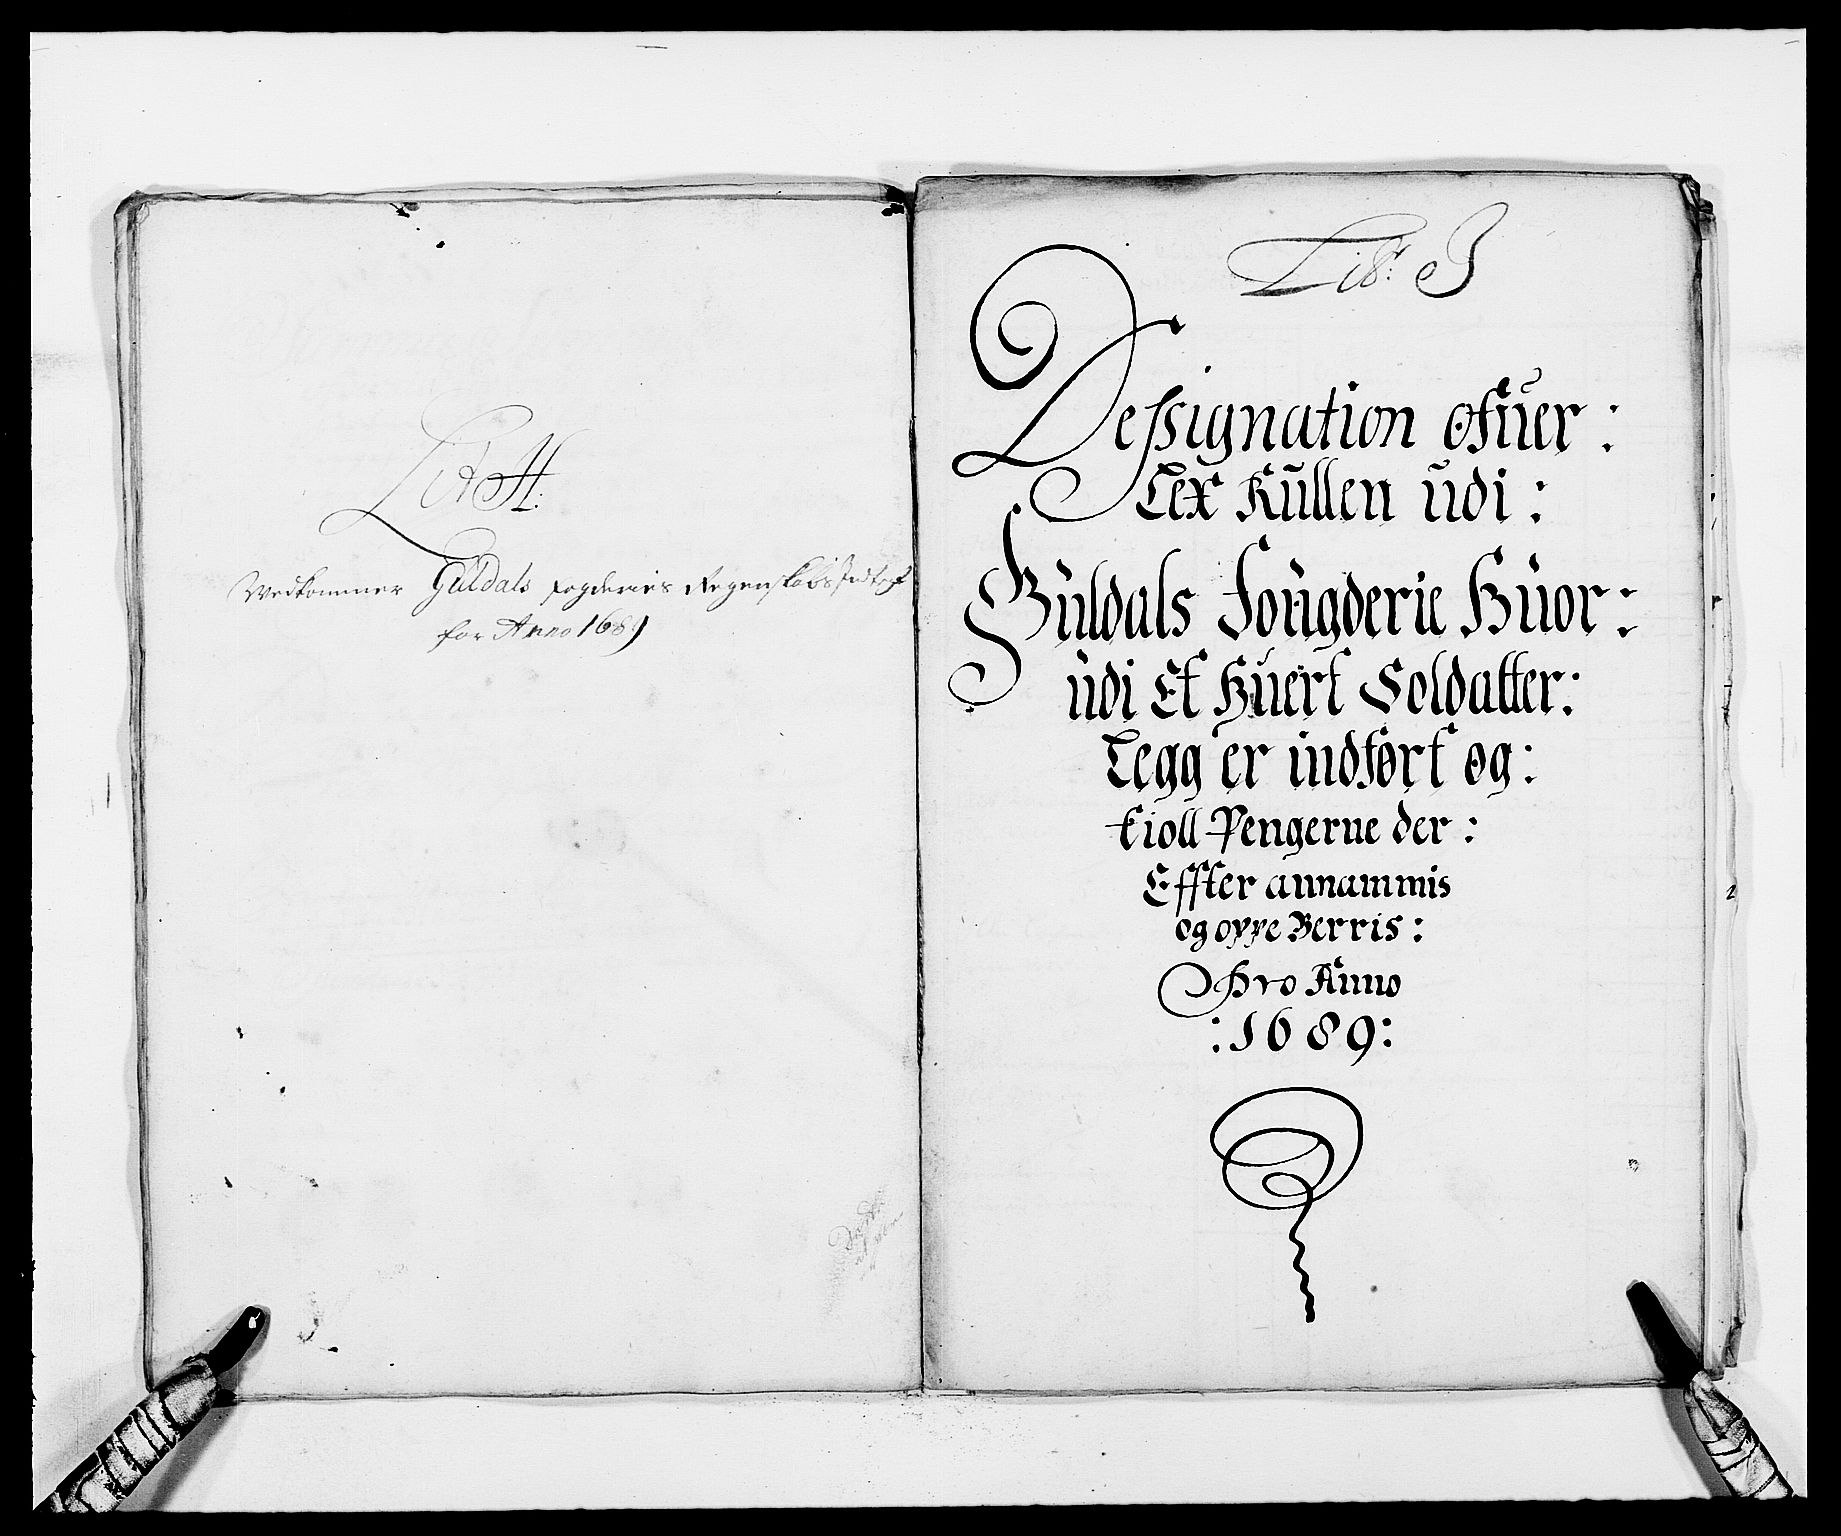 Lit H:
Vedkommer Guldals fogderies Regenskabs Indtegt
for Anno 1689
Litr: J
Dessignation ofuer :
Lex Rullen udi :
Guldals Fougderie Huor :
udi Et Huert Soldatter:
Legg er indført og :
kioll Pengerne der :
Effter annammis
og oppe Berris :
Pro Anno
: 1689 :